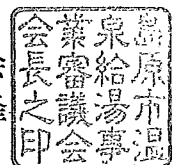 島原市温
泉給湯事
業審議会
会長之印